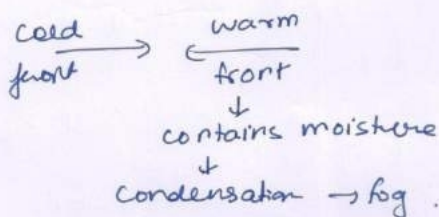 cold warm
front front
contains moisture
condensation → fog.